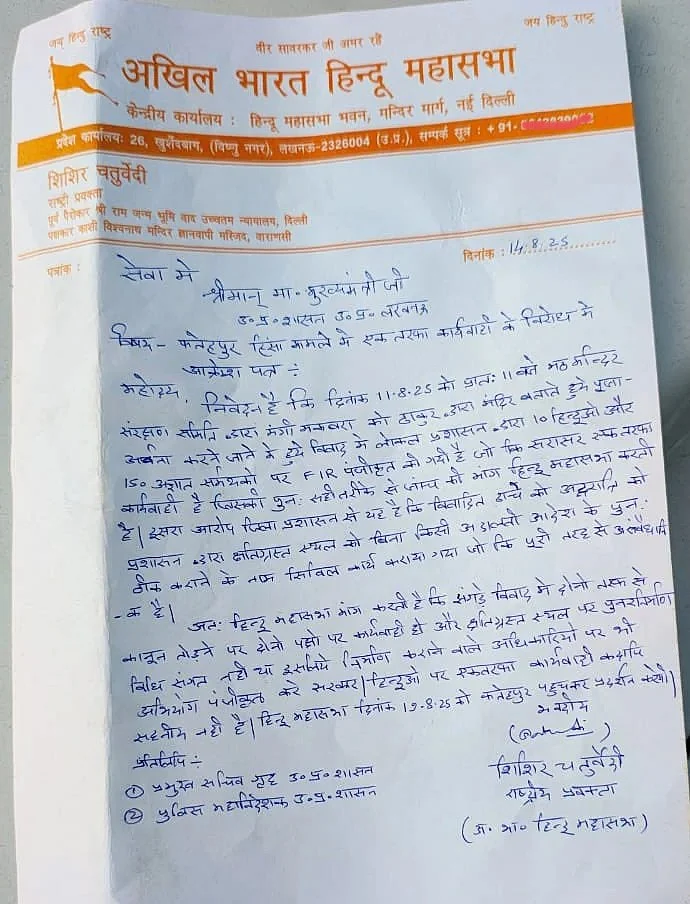 जय हिन्दु राष्ट्र
वीर सावरकर जी अमर रहें
जय हिन्दु राष्ट्र
अखिल भारत हिन्दू महासभा
केन्द्रीय कार्यालय : हिन्दू महासभा भवन, मन्दिर मार्ग, नई दिल्ली
प्रदेश कार्यालय: 26, खुर्शेदबाग, (विष्णु नगर), लखनऊ-2326004 (उ.प्र.), सम्पर्क सूत्र : +91-
शिशिर चतुर्वेदी
राष्ट्री प्रवक्ता
पूर्व पैरोकार श्री राम जन्म भूमि वाद उच्चतम न्यायालय, दिल्ली
पक्षकार काशी विश्वनाथ मन्दिर ज्ञानवापी मस्जिद, वाराणसी
पत्रांक :
दिनांक : 14.8.25
सेवा मे
श्रीमान् मा. मुख्यमंत्री जी
उ.प्र. शासन उ.प्र. लखनऊ
विषय - फतेहपुर हिंसा मामले मे एक तरफा कार्यवाही के विरोध मे
आक्रोश पत्र ÷
महोदय,
निवेदन है कि दिनांक 11.8.25 को प्रातः 11 बजे मठ मन्दिर
संरक्षण समिति द्वारा मंगी मकबरा को ठाकुर द्वारा मंदिर बताते हुये पूजा-
अर्चना करने जाने मे हुये विवाद मे लोकल प्रशासन द्वारा 10 हिन्दुओ और
150 अज्ञात समर्थको पर FIR पंजीकृत की गयी है जो कि सरासर एक तरफा
कार्यवाही है जिसकी पुनः सही तरीके से जांच की मांग हिन्दू महासभा करती
है। दूसरा आरोप जिला प्रशासन से यह है कि विवादित ढाचे को को
प्रशासन द्वारा क्षतिग्रस्त स्थल को बिना किसी अदालती आदेश के पुनः
ठीक कराने के नाम सिविल कार्य कराया गया जो कि पूरी तरह से असंवैधानि
-क है।
अतः हिन्दू महासभा मांग करती है कि झगड़े विवाद मे दोनो तरफ से
कानून तोड़ने पर दोनो पक्षो पर कार्यवाही हो और क्षतिग्रस्त स्थल पर पुनरनिर्माण
विधि संगत नही था इसलिये निर्माण कराने वाले अधिकारियो पर भी
अभियोग पंजीकृत करे सरकार। हिन्दूओ पर एकतरफा कार्यवाही कदापि
सहनीय नही है। हिन्दू महासभा दिनांक को फतेहपुर पहुचकर प्रदर्शन करेगी।
भवदीय
प्रतिलिपि ÷
① प्रमुख सचिव गृह उ.प्र. शासन
② पुलिस महानिदेशक उ.प्र. शासन
शिशिर चतुर्वेदी
राष्ट्रीय प्रवक्ता
(अ. भा. हिन्दू महासभा)